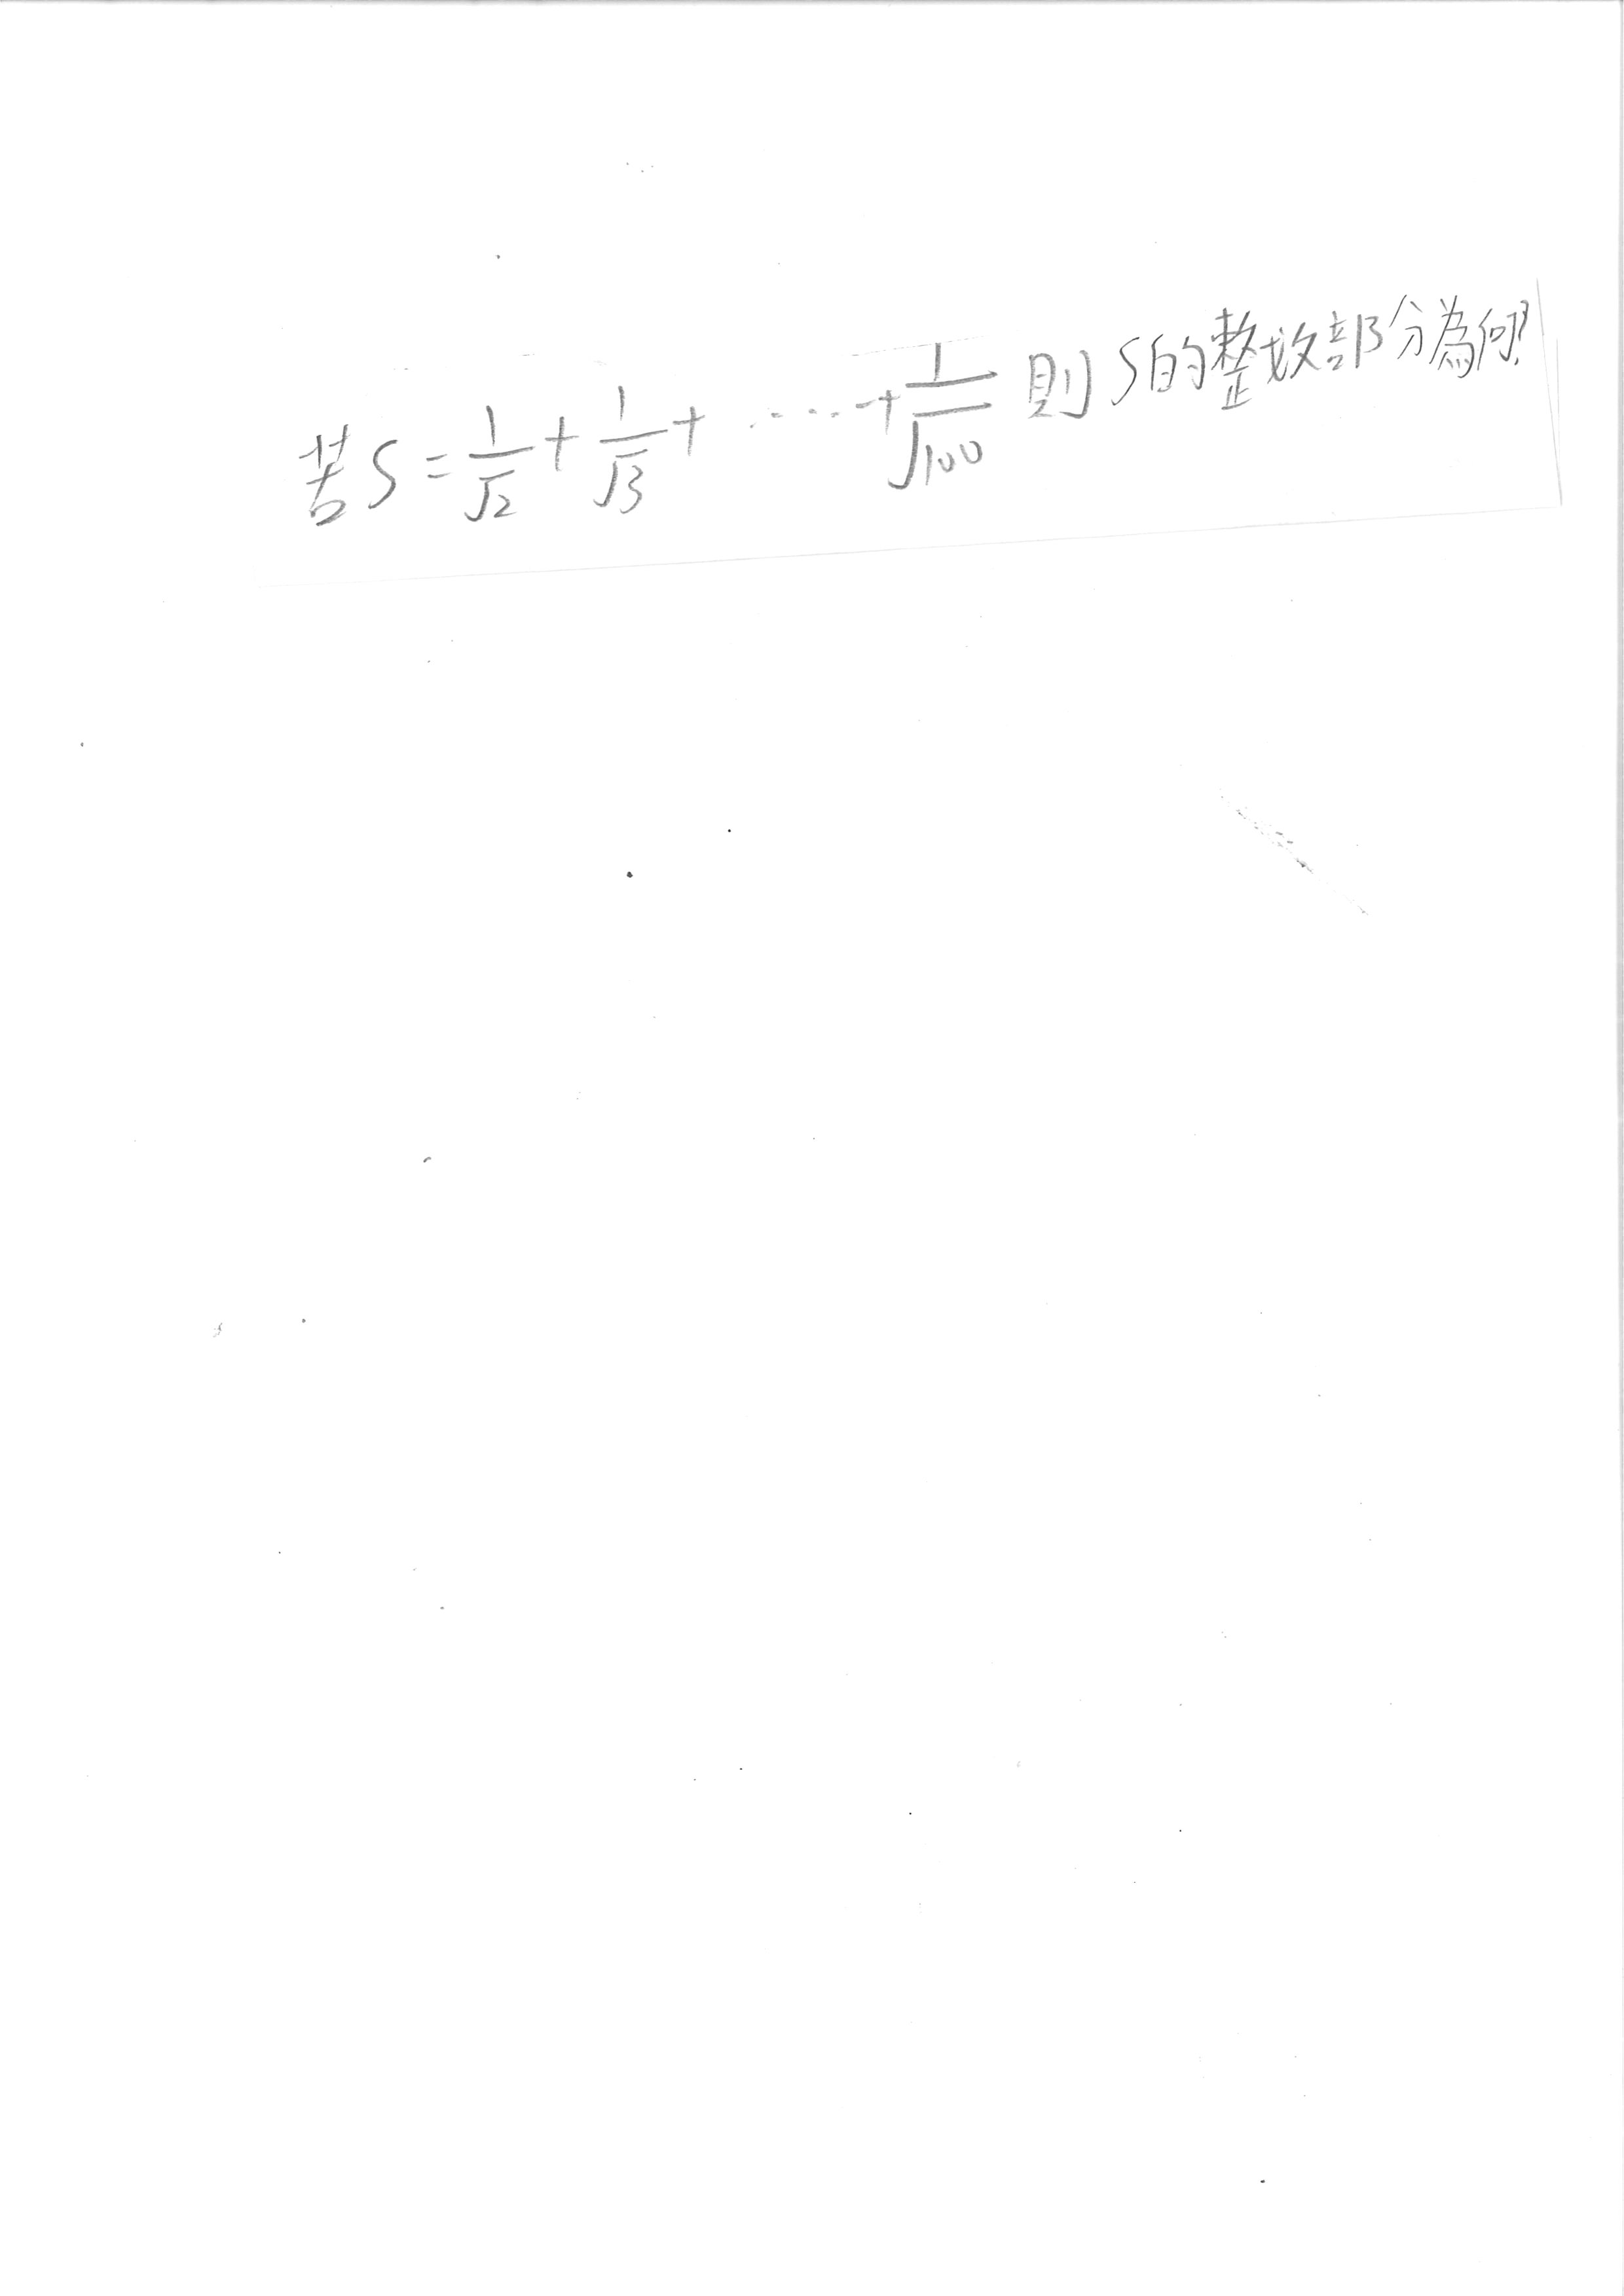 若 S = 1/√2 + 1/√3 + ..... + 1/√100 則 S的整数部分為何?